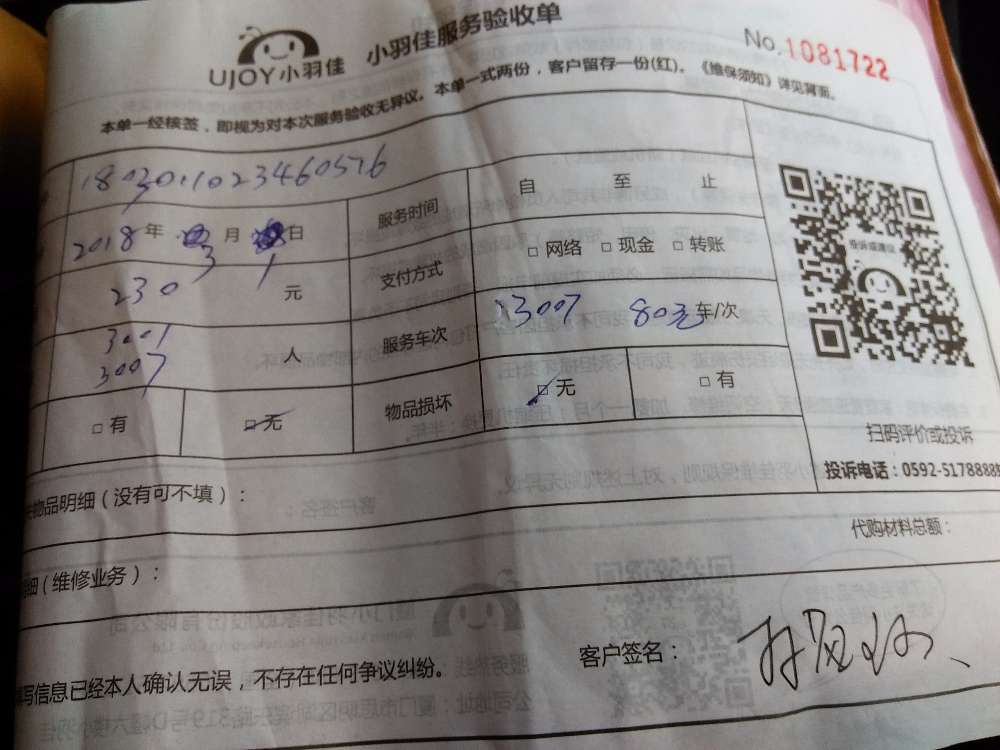 UJOY小羽佳 小羽佳服务验收单 No.1081722
本单一经核签，即视为对本次服务验收无异议。本单一式两份，客户留存一份(红)。《维保须知》详见背面。
1803011023460576
服务时间 自 至 止
2018年 3月 1日
支付方式 □网络 □现金 □转账
230 元
服务车次 3007 80元 车/次
3001
3007 人
□有 □无 物品损坏 □无 □有
投诉或建议
扫码评价或投诉
投诉电话：0592-5178888
物品明细（没有可不填）：
代购材料总额：
细（维修业务）：
写信息已经本人确认无误，不存在任何争议纠纷。
客户签名：